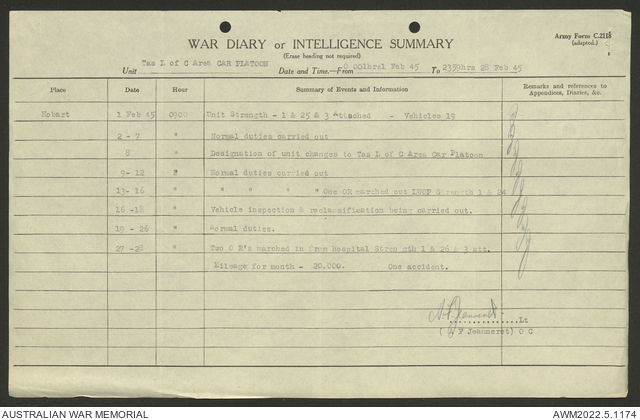 Army Form C.2118
(adapted.)
WAR DIARY or INTELLIGENCE SUMMARY
(Erase heading not required)
Unit Tas L of C Area CAR PLATOON Date and Time.—From 0 001hrs1 Feb 45 To 2359hrs 28 Feb 45
Place Date Hour Summary of Events and Information Remarks and references to Appendices, Diaries, &c.
Hobart 1 Feb 45 0900 Unit Strength - 1 & 25 & 3 Attached - Vehicles 19
2 - 7 " Normal duties carried out
8 " Designation of unit changes to Tas L of C Area Car Platoon
9- 12 " Normal duties carried out
13- 16 " " " " " One OR marched out LHQP Strength 1 & 24
16 -18 " Vehicle inspection & reclassification being carried out.
19 - 26 " Normal duties.
27 -28 " Two O R's marched in from hospital Strength 1 & 26 & 3 att.
Mileage for month - 20.000. One accident.
Lt
F Jeanneret) O C
AUSTRALIAN WAR MEMORIAL AWM2022.5.1174